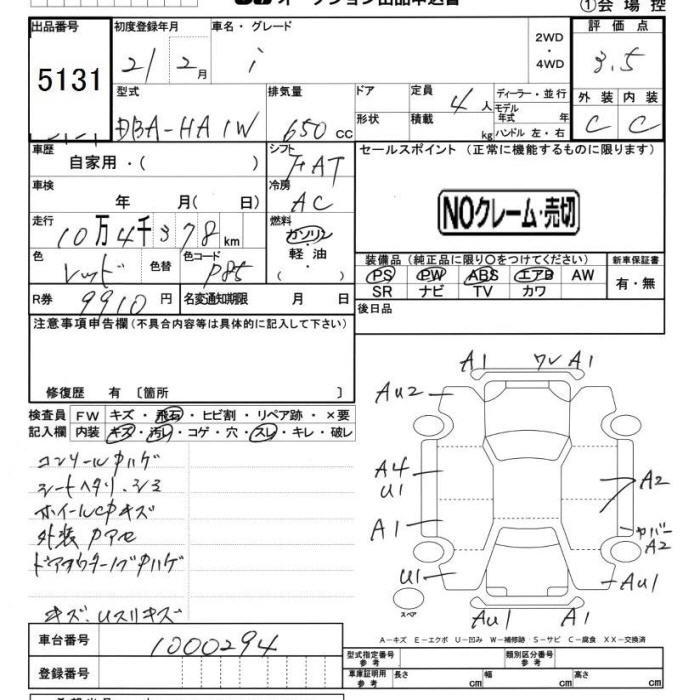 ①会場控
出品番号 初度登録年月 車名・グレード 2WD ・ 4WD 評価点
5131 21 年 2 月 i 3.5
型式 排気量 ドア 定員 4 人 ディーラー・並行 外装 内装
DBA-HA1W 650 cc 形状 積載 kg モデル年式 年 ハンドル 左・右 C C
車歴 自家用・( ) シフト FAT セールスポイント (正常に機能するものに限ります)
車検 年 月( 日) 冷房 AC
NOクレーム・売切
走行 10万4千378km 燃料 ガソリン
軽油 ・( )
色 レッド 色替 色コード P85 装備品 (純正品に限り○をつけてください) 新車保証書
PS PW ABS エアB AW 有・無
SR ナビ TV カワ
R券 9910 円 名変通知期限 月 日 後日品
注意事項申告欄 (不具合内容等は具体的に記入して下さい)
修復歴 有 〔箇所 〕
検査員 FW キズ・飛石・ヒビ割・リペア跡・×要
記入欄 内装 キズ・汚レ・コゲ・穴・スレ・キレ・破レ
コンソール中ハゲ
シートヘタリ.シミ
ホイールC中キズ
外装
キズ.Uスリキズ
A1 A1
AU2
A4 U1 A2
A1 カバー A2
U1 AU1
スペア AU1 A1
A-キズ E-エクボ U-凹み W-補修跡 S-サビ C-腐食 XX-交換済
車台番号 1000294
登録番号
型式指定番号 参考 類別区分番号 参考
車庫証明用 参考 長さ cm 幅 cm 高さ cm